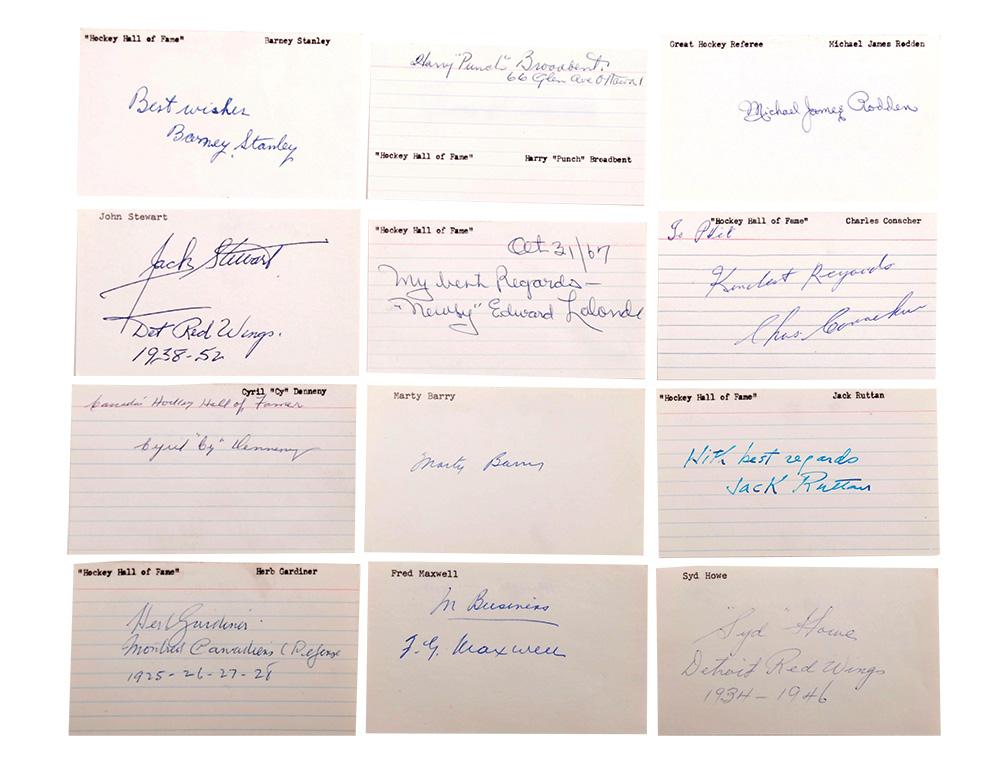 "Hockey Hall of Fame" Barney Stanley
Best wishes
Barney Stanley
Harry "Punch" Broadbent.
66 Glen Ave Ottawa 1
"Hockey Hall of Fame" Harry "Punch" Broadbent
Great Hockey Referee Michael James Rodden
Michael James Rodden
John Stewart
Jack Stewart
Det Red Wings.
1938-52
"Hockey Hall of Fame"
Oct 31/67
My best Regards —
"Newsy" Edward Lalonde
"Hockey Hall of Fame" Charles Conacher
To Phil
Kindest Regards
Chas. Conacher
Cyril "Cy" Denneny
Canada's Hockey Hall of Famer
Cyril "Cy" Denneny
Marty Barry
Marty Barry
"Hockey Hall of Fame" Jack Ruttan
With best regards
Jack Ruttan
"Hockey Hall of Fame" Herb Gardiner
Herb Gardiner
Montreal Canadiens (Defense
1925-26-27-28
Fred Maxwell
In Business
F. G. Maxwell
Syd Howe
"Syd" Howe
Detroit Red Wings
1934-1946